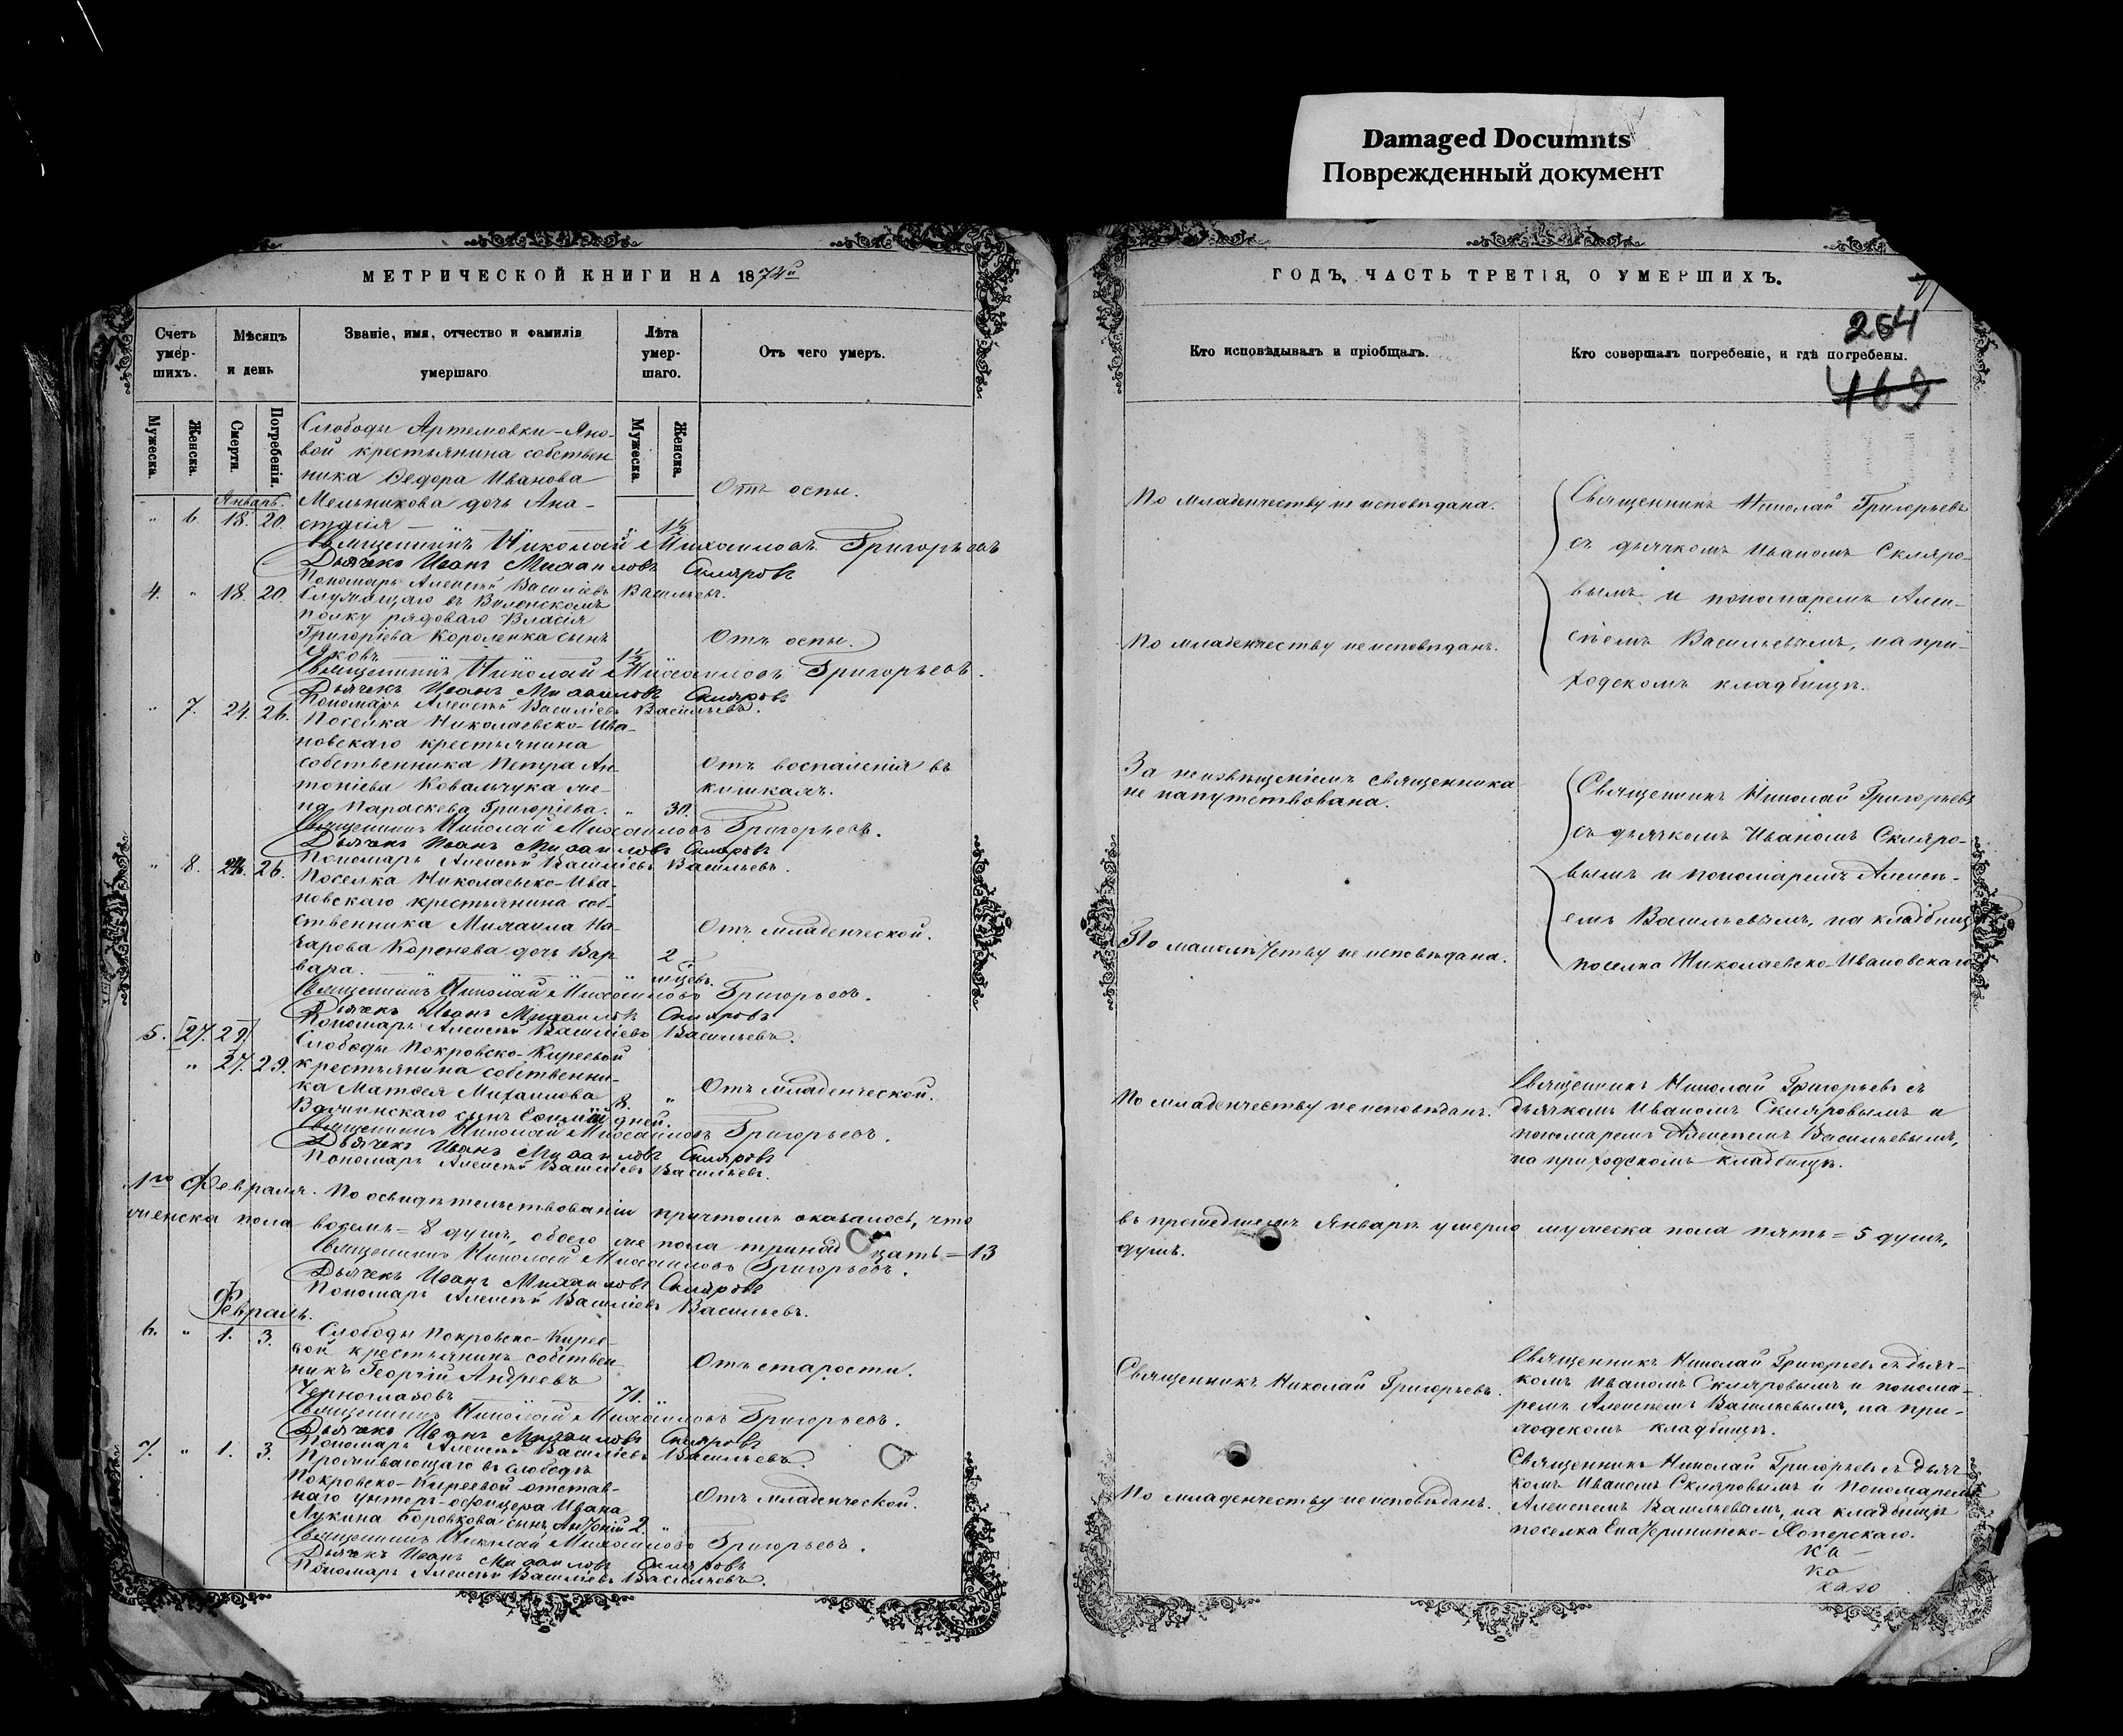 Damaged Documnts
Поврежденный документ
МЕТРИЧЕСКОЙ КНИГИ НА 1874й
Счетъ умер-шихъ.
Мѣсяцъ и день
Званіе, имя, отчество и фамилія умершаго
Лѣта умер-шаго.
Отъ чего умеръ.
Мужеска.
Женска.
Смерти.
Погребенія.
Мужеска.
Женска.
Январь.
Слободы Артемовки-Яно-
вой крестьянина собствен
ника Ѳедора Иванова
Мельникова дочь Ана-
" 6. 18. 20. стасія " 1½
Отъ оспы.
Священникъ Николай Михаиловъ Григорьевъ
Дьячекъ Иванъ Михаиловъ Скляровъ
Пономарь Алексѣй Василіевъ Васильевъ.
4. " 18. 20. Служащаго въ Виленскомъ
полку рядоваго Власія
Григоріева Короленка сынъ
Отъ оспы.
Яковъ 1½
Священникъ Николай Михаиловъ Григорьевъ.
Дьячекъ Иванъ Михаиловъ Скляровъ
Пономарь Алексѣй Василіевъ Васильевъ.
" 7. 24. 26. Поселка Николаевско-Ива-
новскаго крестьянина
собственника Петра Ан-
тоніева Ковальчука же-
на Параскева Григоріева. " 30.
Отъ воспаленія въ
кишкахъ.
Священникъ Николай Михаиловъ Григорьевъ.
Дьячекъ Иванъ Михаиловъ Скляровъ
Пономарь Алексѣй Василіевъ Васильевъ.
" 8. 24. 26. Поселка Николаевско-Ива-
новскаго крестьянина соб-
ственника Михаила На-
зарова Коренева дочь Вар-
вара. " 2 мцевъ.
Отъ младенческой.
Священникъ Николай Михаиловъ Григорьевъ.
Дьячекъ Иванъ Михаиловъ Скляровъ
Пономарь Алексѣй Василіевъ Васильевъ.
5. [27. 29]
Слободы Покровско-Киреевой
" 27. 29. крестьянина собственни-
ка Матѳея Михаилова
сынъ 8. дней. "
Отъ младенческой.
Священникъ Николай Михаиловъ Григорьевъ.
Дьячекъ Иванъ Михаиловъ Скляровъ
Пономарь Алексѣй Василіевъ Васильевъ.
1го Февраля. По освидѣтельствованіи причтомъ оказалось, что
женска пола восемь = 8 душъ, обоего же пола тринадцать = 13
Священникъ Николай Михаиловъ Григорьевъ.
Дьячекъ Иванъ Михаиловъ Скляровъ
Пономарь Алексѣй Василіевъ Васильевъ.
Февраль.
6. " 1. 3. Слободы Покровско-Кирее-
вой крестьянинъ собствен-
никъ Георгій Андреевъ
Черноглазовъ 71. "
Отъ старости.
Священникъ Николай Михаиловъ Григорьевъ.
Дьячекъ Иванъ Михаиловъ Скляровъ
Пономарь Алексѣй Василіевъ Васильевъ.
7. " 1. 3. Проживающаго въ слободѣ
Покровско-Киреевой отстав-
наго унтеръ-офицера Ивана
Лукина Боровкова сынъ Антоній 2. "
Отъ младенческой.
Священникъ Николай Михаиловъ Григорьевъ.
Дьячекъ Иванъ Михаиловъ Скляровъ
Пономарь Алексѣй Василіевъ Васильевъ.
ГОДЪ, ЧАСТЬ ТРЕТІЯ, О УМЕРШИХЪ.
264
469
Кто исповѣдывалъ и пріобщалъ.
Кто совершалъ погребеніе, и гдѣ погребены.
По младенчеству не исповѣдана.
Священникъ Николай Григорьевъ
съ дьячкомъ Иваномъ Скляро-
вымъ и пономаремъ Алек-
сѣемъ Васильевымъ, на при-
ходскомъ кладбищѣ.
По младенчеству не исповѣданъ.
За неизвѣщеніемъ священника
не напутствована.
Священникъ Николай Григорьевъ
съ дьячкомъ Иваномъ Скляро-
вымъ и пономаремъ Алексѣ-
емъ Васильевымъ, на кладбищѣ
поселка Николаевско-Ивановскаго
По малолѣтству не исповѣдана.
По младенчеству не исповѣданъ.
Священникъ Николай Григорьевъ съ
дьячкомъ Иваномъ Скляровымъ и
пономаремъ Алексѣемъ Васильевымъ,
на приходскомъ кладбищѣ.
въ прошедшемъ Январѣ умерло мужеска пола пять = 5 душъ,
душъ.
Священникъ Николай Григорьевъ.
Священникъ Николай Григорьевъ съ дьяч-
комъ Иваномъ Скляровымъ и понома-
ремъ Алексѣемъ Васильевымъ, на при-
ходскомъ кладбищѣ.
По младенчеству не исповѣданъ.
Священникъ Николай Григорьевъ съ дьяч-
комъ Иваномъ Скляровымъ и Пономаремъ
Алексѣемъ Васильевымъ, на кладбищѣ
поселка Екатерининско-Хоперскаго.
ка-
ко
каго